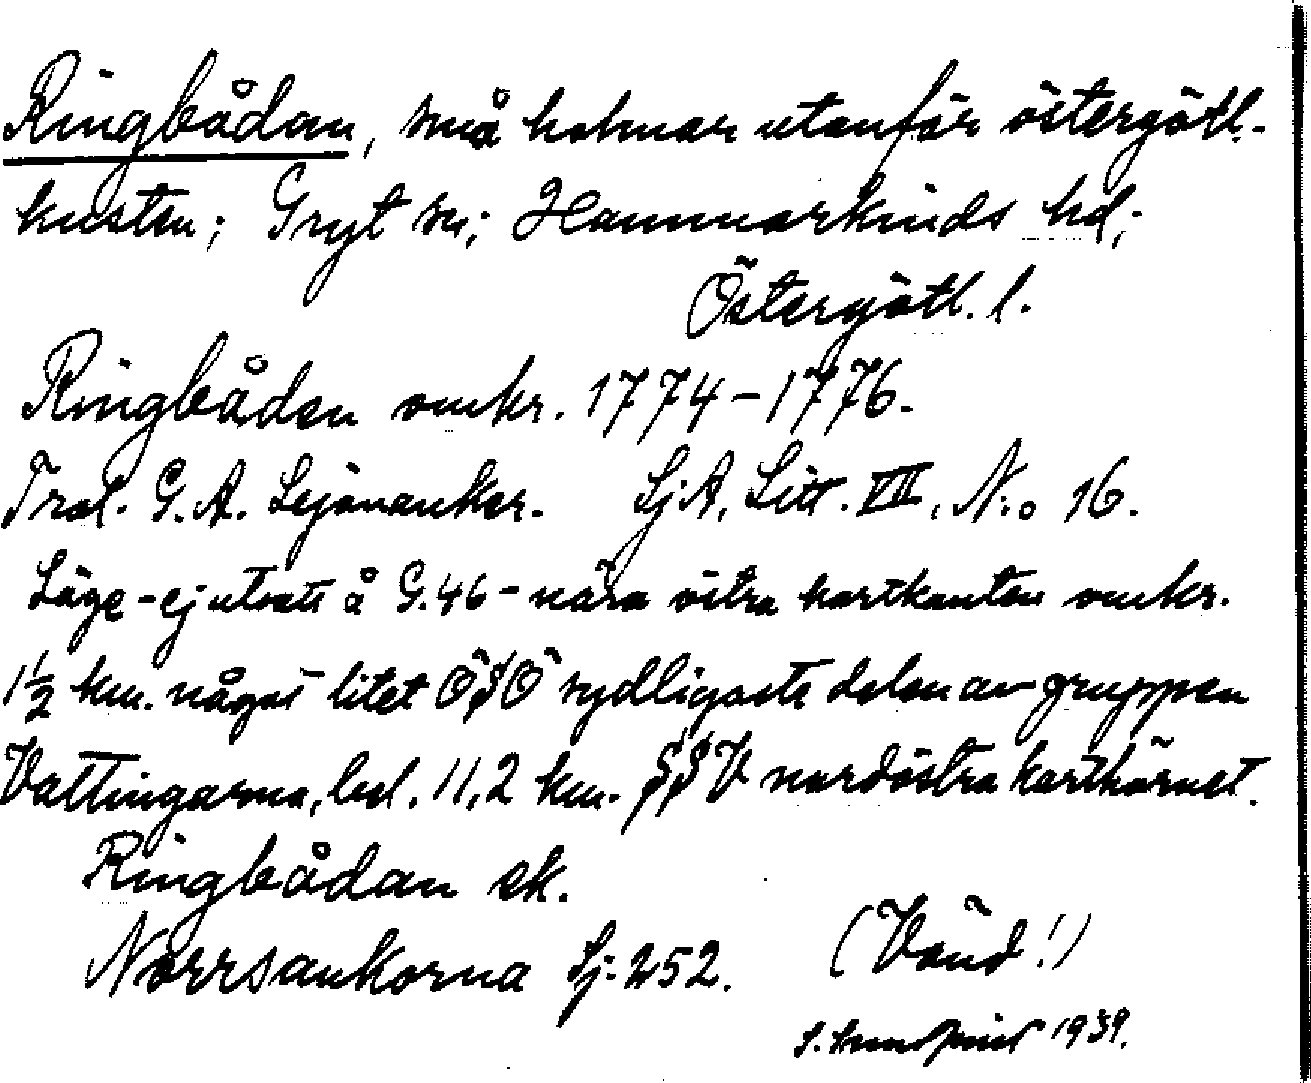 Ringbådan, små holmar utanför östergötl.-
kusten; Gryt sn; Hammarkinds hd;
Östergötl. l.
Ringbåden omkr. 1774-1776.
Trol. G. A. Lejonanker. Sj.A. Litt. VIII, N:o 16.
Läge - ej utsatt å G.46 - nära östra kartkanten omkr.
1½ km. något litet ÖSÖ sydligaste delen av gruppen
Vattingarna, bel. 11,2 km. SSV nordöstra karthörnet.
Ringbådan ek.
Norrsankorna Sj: 252. (Vänd!)
1939.